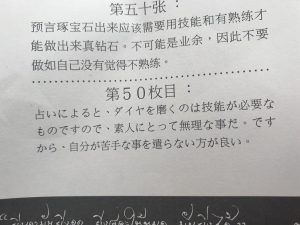 第五十张：
预言琢宝石出来应该需要用技能和有熟练才
能做出来真钻石。不可能是业余，因此不要
做如自己没有觉得不熟练。
第５０枚目：
占いによると、ダイヤを磨くのは技能が必要な
ものですので、素人にとって無理な事だ。です
から、自分が苦手な事を遣らない方が良い。